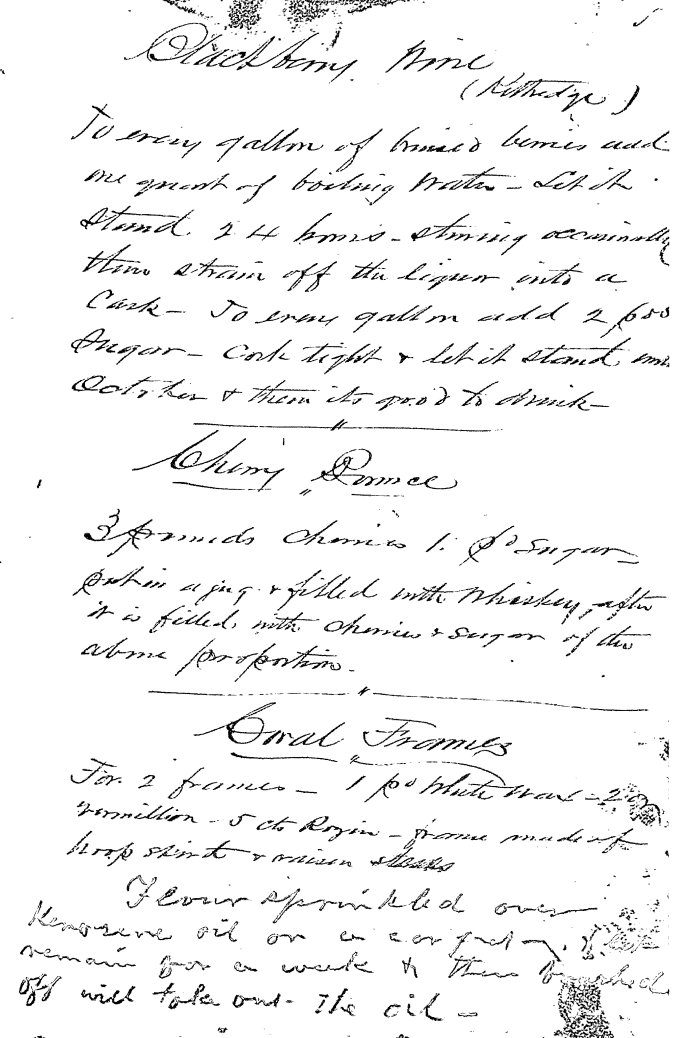 Blackberry Wine
(Kittredge)
To every gallon of bruised berries add
one quart of boiling water - Let it
stand 24 hours - stirring occasionally
then strain off the liquor into a
Cask - To every gallon add 2 pos
Sugar - Cork tight & let it stand
October & then its good to drink -
Cherry Bounce
3 pounds cherries 1 po sugar -
put in a jug & filled with Whiskey, after
it is filled with cherries & sugar of the
above proportion -
Coral Frames
For 2 frames - 1 po White Wax - 2 oz
vermillion - 5 cts Rozin - frame made of
hoop skirt & raisin stems
Flour sprinkled over
Kerosene oil on a carpet & let
remain for a week & then brushed
off will take out the oil -